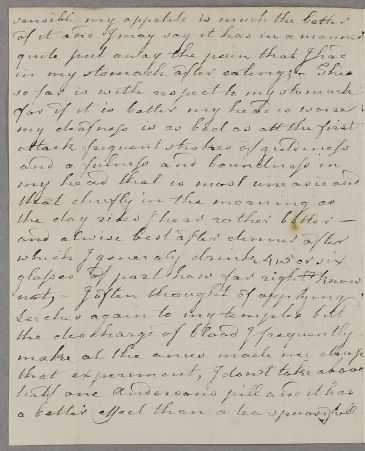 sensible my appetite is much the better
of it and I may say it has in a manner
quite put away the pain that I had
in my stomach after eating; this
so far is with respect to my stomach
for if it is better my head is worse
my deafness is as bad as att the first
attack frequent strokes of gidiness
and a fulness and boundness in
my head that is most uneasie and
that chiefly in the morning as
the day rises I hear rather better —
and alwise best after dinner after
which I generaly drink 4, 5 or six
glasses of port how far right I know
not, – I often thought of applying
Leeches again to my temples but
the descharge of blood I frequently
make at the anus made me drop
that experiment, I dont take above
half one Andersons pill and it has
a better effect than a tea spoonfull